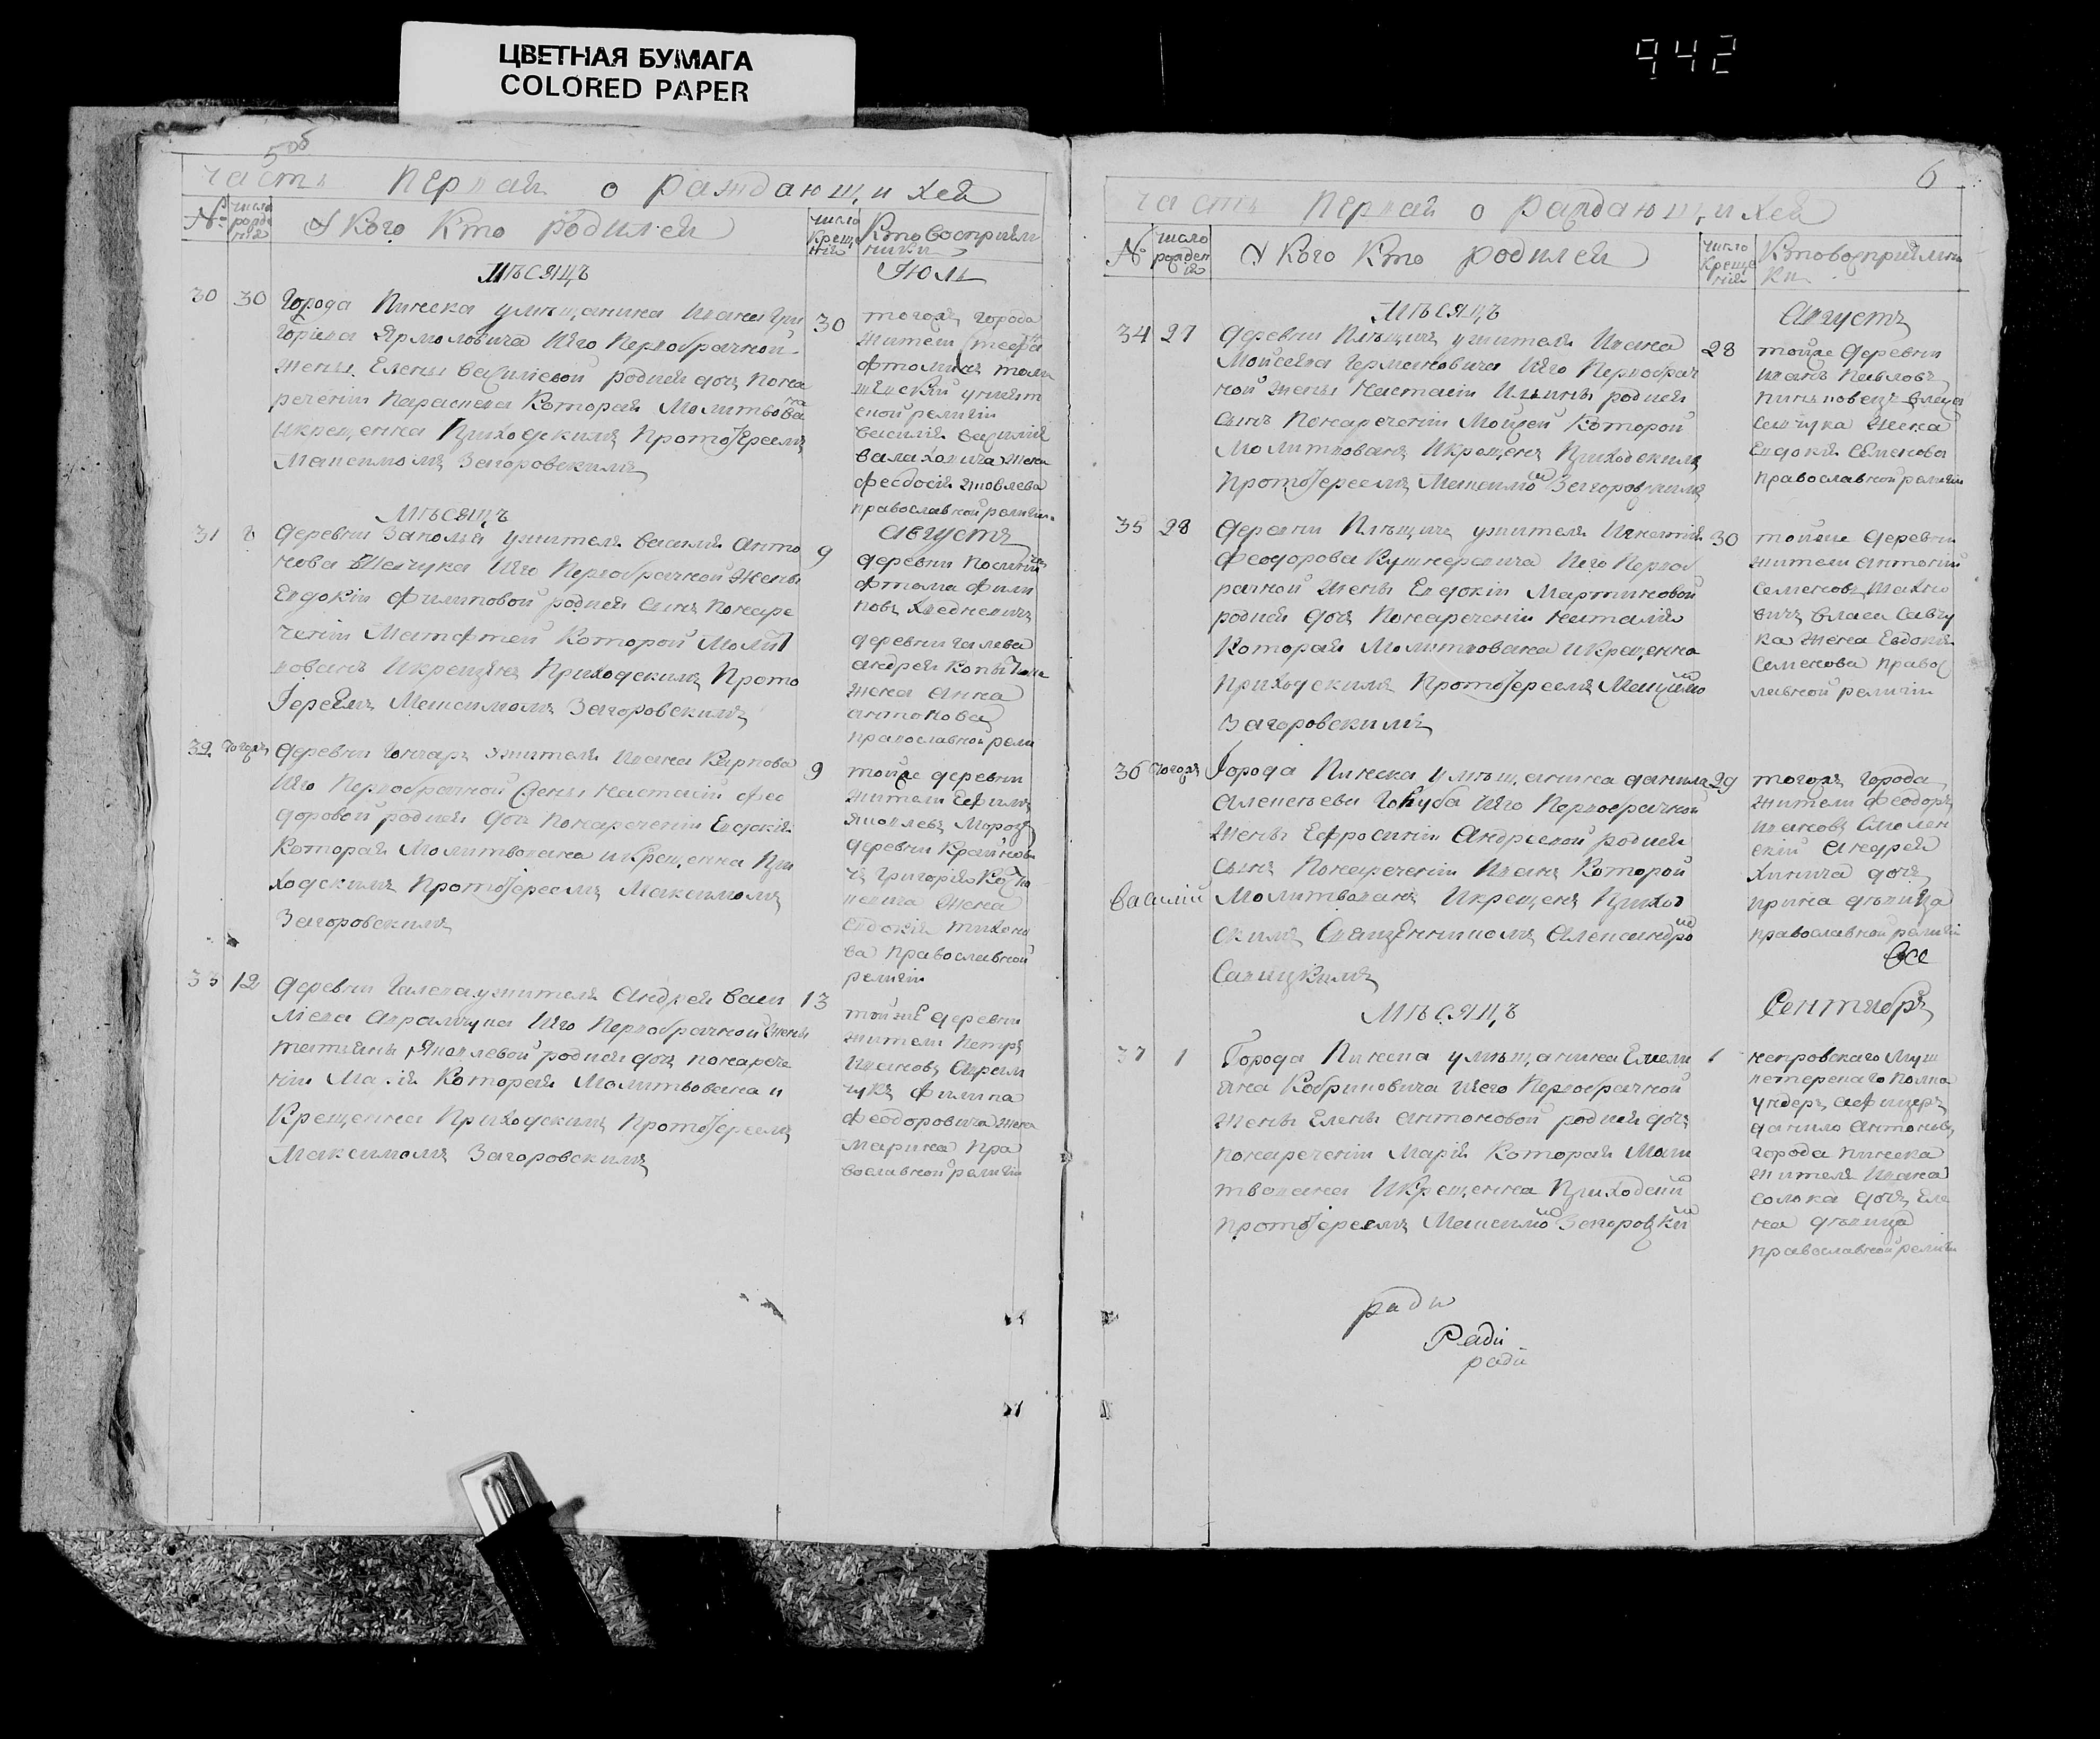 ЦВЕТНАЯ БУМАГА
COLORED PAPER
942
5 об
часть Первая о раждающихся
№ число рожде ния
У Кого Кто родился
число Креще ній
Кто восприем ники
Мѣсяцъ
Июль
30 30 Города Пинска умѣщанина Ивана Гри
горіева Ярмоловича Иего Первобрачной
жены Елены Василіевой родися дочь пона
речении Параскева Которая Молитвова на
Икрещенна Приходскимъ Протоіереемъ
Максимомъ Загоровскимъ
30
тогожъ города
жители
православной религіи
Мѣсяцъ
Августъ
31 8 деревни Заполья ужителя Василия Анто
нова Шевчука Иего Первобрачной жены
Евдокіи Филиповой родися сынъ понаре
ченіи Матфтей Которой Молит
вованъ Икрещенъ Приходскимъ Прото
Іереемъ Максимомъ Загоровскимъ
9
деревни
Фтома Фили
повъ
деревни Галева
андрея
жена Анна
антонова
православной рели
32 тогожъ деревни Гончаръ ужителя Ивана Карпова
Иего Первобрачной жены Настасіи Фео
доровой родися дочь понареченіи Евдокія
Которая Молитвована икрещенна При
ходскимъ Протоіереемъ Максимомъ
Загоровскимъ
9
тойже деревни
жители Ефимъ
Яковлевъ Морозъ
деревни
Григорія
жена
Евдокія Тихоно
ва Православной
религіи
33 12 деревни Галева ужителя Андрея Васи
лиева Аврамчука Иего Первобрачной жены
татияны Яковлевой родися дочь понарече
ніи Марія Которая Молитвована и
Крещенна Приходскимъ Протоіереемъ
Максимомъ Загоровскимъ
13
тойже деревни
жители Петръ
Ивановъ Аврам
чукъ Филипа
Феодоровича жена
Марина Пра
вославной религіи
6
часть Первая о раждающихся
№ число рожден ія
У Кого Кто родился
число Креще ній
Кто восприемни ки
Мѣсяцъ
Августъ
34 27 деревни Плещицъ ужителя Ивана
Мойсеева Германовича Иего Первобрач
ной жены Настасіи родися
сынъ понареченіи Мойсей Которой
Молитвованъ Икрещенъ Приходскимъ
Протоіереемъ Максимомъ Загоровскимъ
28
тойже деревни
Иванъ Павловъ
жена
Евдокия Семенова
православной религіи
35 28 деревни Плещицъ ужителя Игнатія
Феодорова Кушнеревича Иего Первоб
рачной жены Евдокіи Мартиновой
родися дочь понареченіи Наталия
Которая Молитвована икрещенна
приходскимъ Протоіереемъ Максимо мъ
Загоровскимъ
30
тойже деревни
жители Антоній
Семеновъ Махно
вичъ Власа Савчу
ка жена Евдокия
Семенова Правос
лавной религіи
36 тогожъ Города Пинска умѣщанина данила
Алексеева Голуба Иего Первобрачной
жены Ефросиніи Андреевой родися
сынъ понареченіи Иванъ Которой
Василій Молитвованъ Икрещенъ Приход
скимъ Священникомъ Александро мъ
Савицкимъ
29
тогожъ города
жители Феодоръ
Ивановъ Смолен
ский Андрея
дочь
ирина девица
православной религіи
Все
Мѣсяцъ
Сентябрь
37 1 Города Пинска умѣщанина Емели
ана Кобриновича Иего Первобрачной
жены Елены Антоновой родися дочь
понареченіи Марія Которая Моли
твована Икрещенна Приходски мъ
протоіереемъ Максимо мъ Загоровски мъ
1
непровскаго Муш
петерскаго полка
ундеръ афицеръ
данило Антоновъ
города Пинска
жителя Ивана
дочь Еле
на девица
православной религіи
ради
Ради
ради